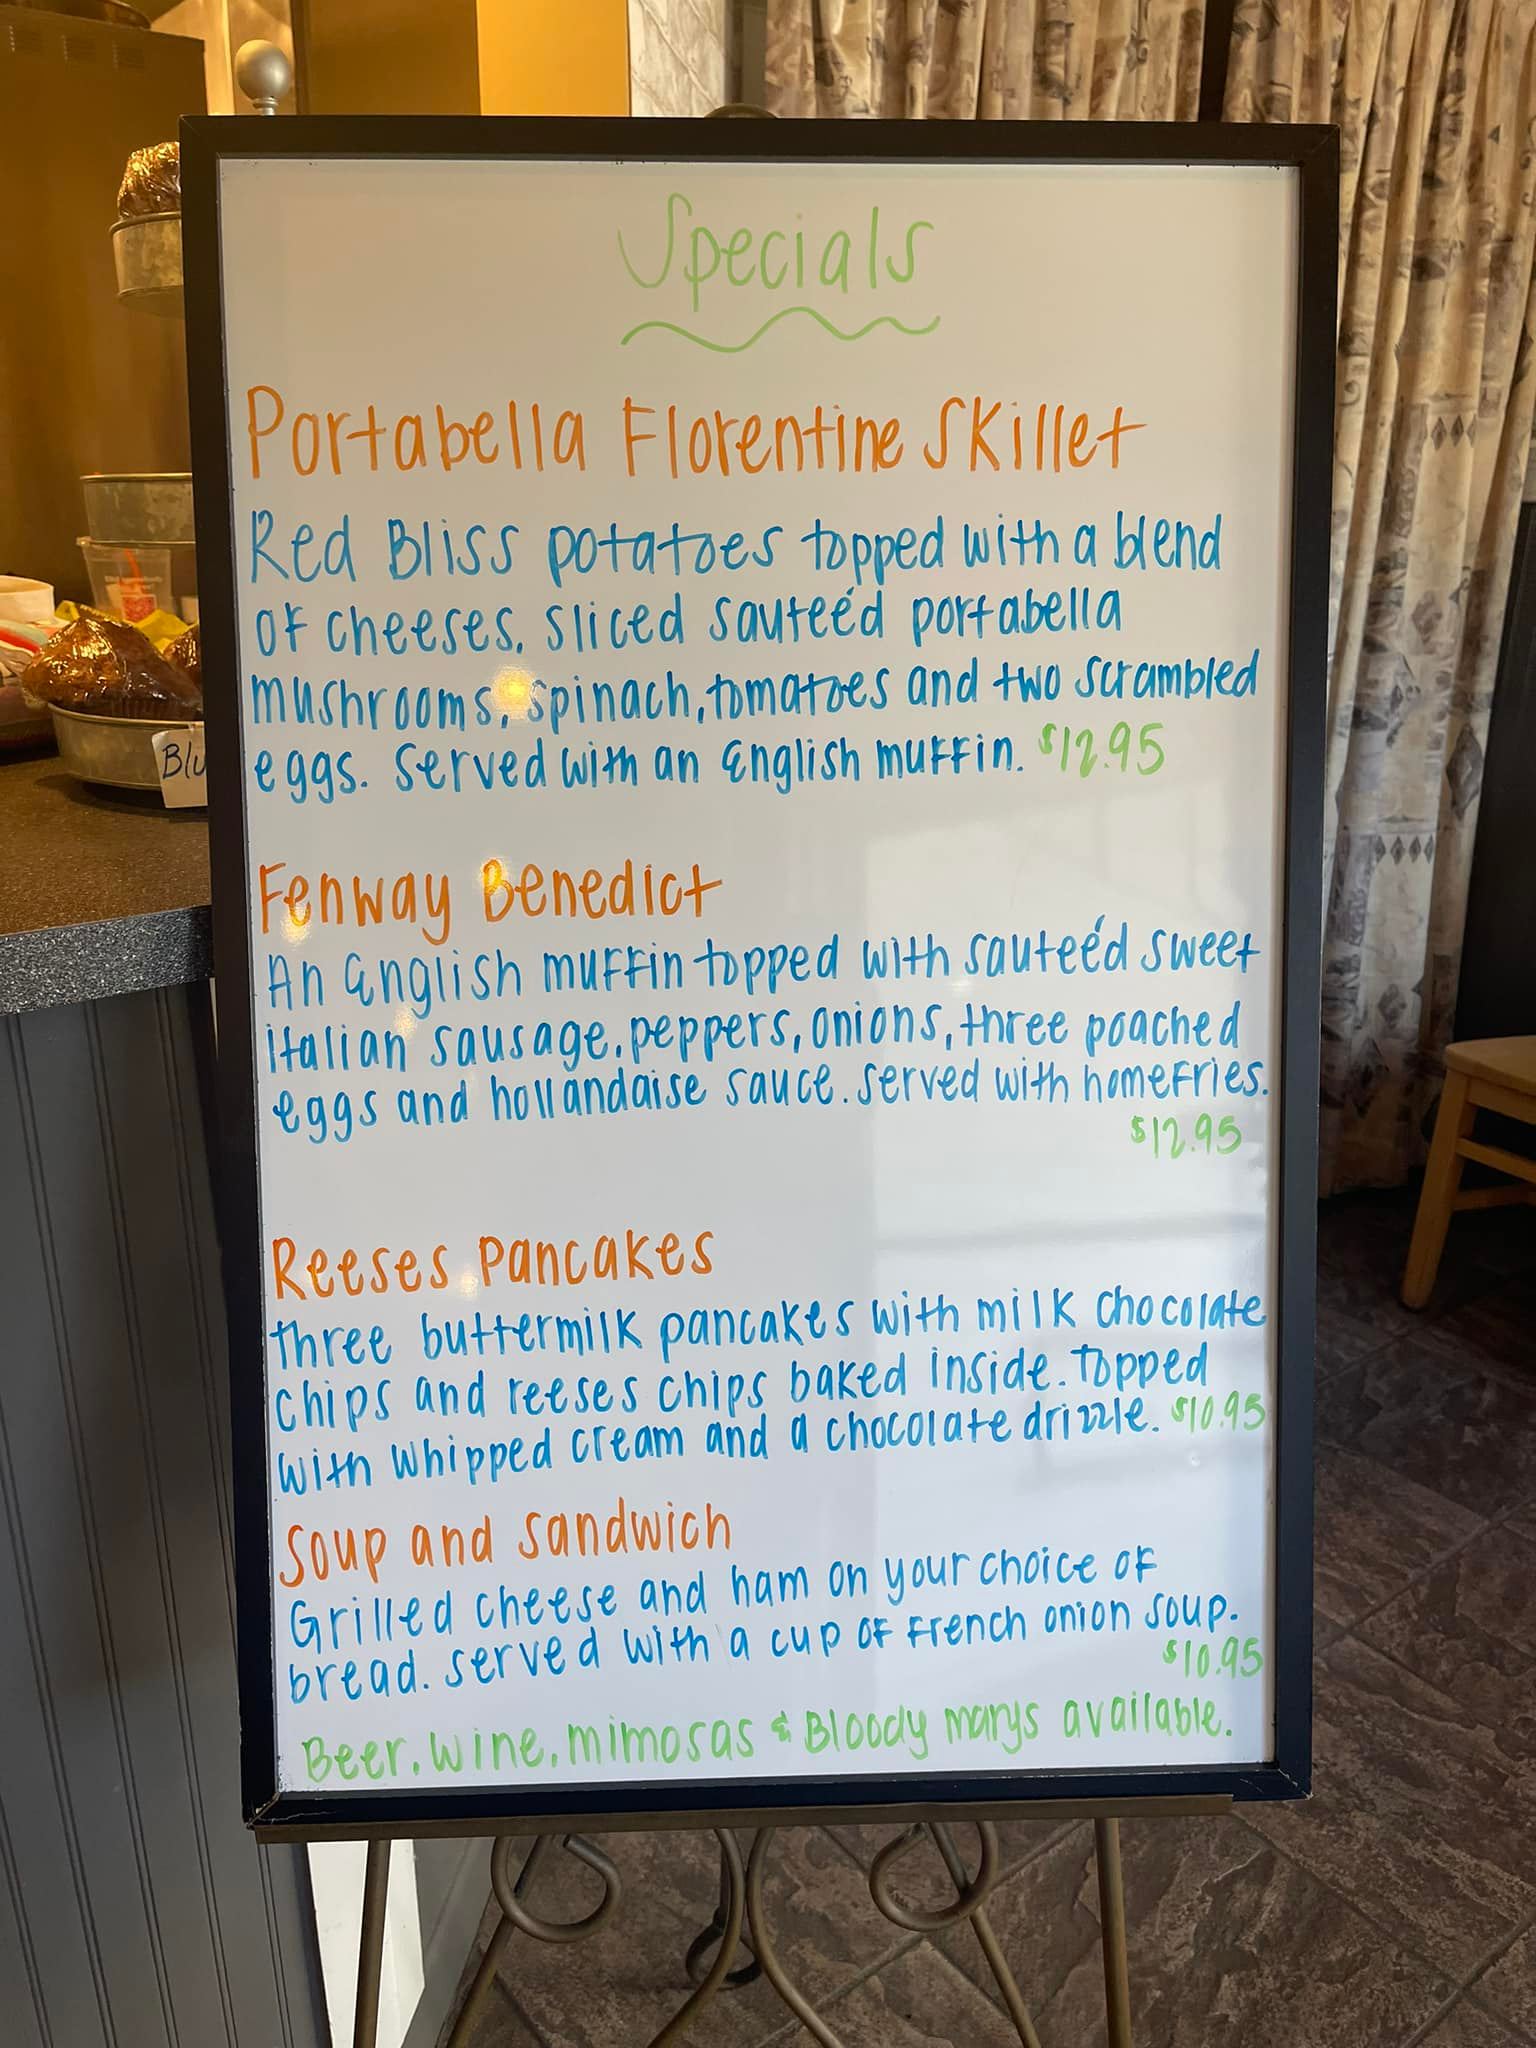 Specials
Portabella Florentine Skillet
Red Bliss potatoes topped with a blend
of cheeses, sliced sauteé'd portabella
mushrooms, spinach, tomatoes and two scrambled
eggs. Served with an English muffin. $12.95
Fenway Benedict
An English muffin topped with sauteé'd sweet
italian sausage, peppers, onions, three poached
eggs and hollandaise sauce. Served with homefries.
$12.95
Reeses Pancakes
three buttermilk pancakes with milk chocolate
chips and reeses chips baked inside. Topped
with whipped cream and a chocolate drizzle. $10.95
Soup and Sandwich
Grilled cheese and ham on your choice of
bread. served with a cup of French onion soup.
$10.95
Beer, wine, mimosas & Bloody marys available.
Blu